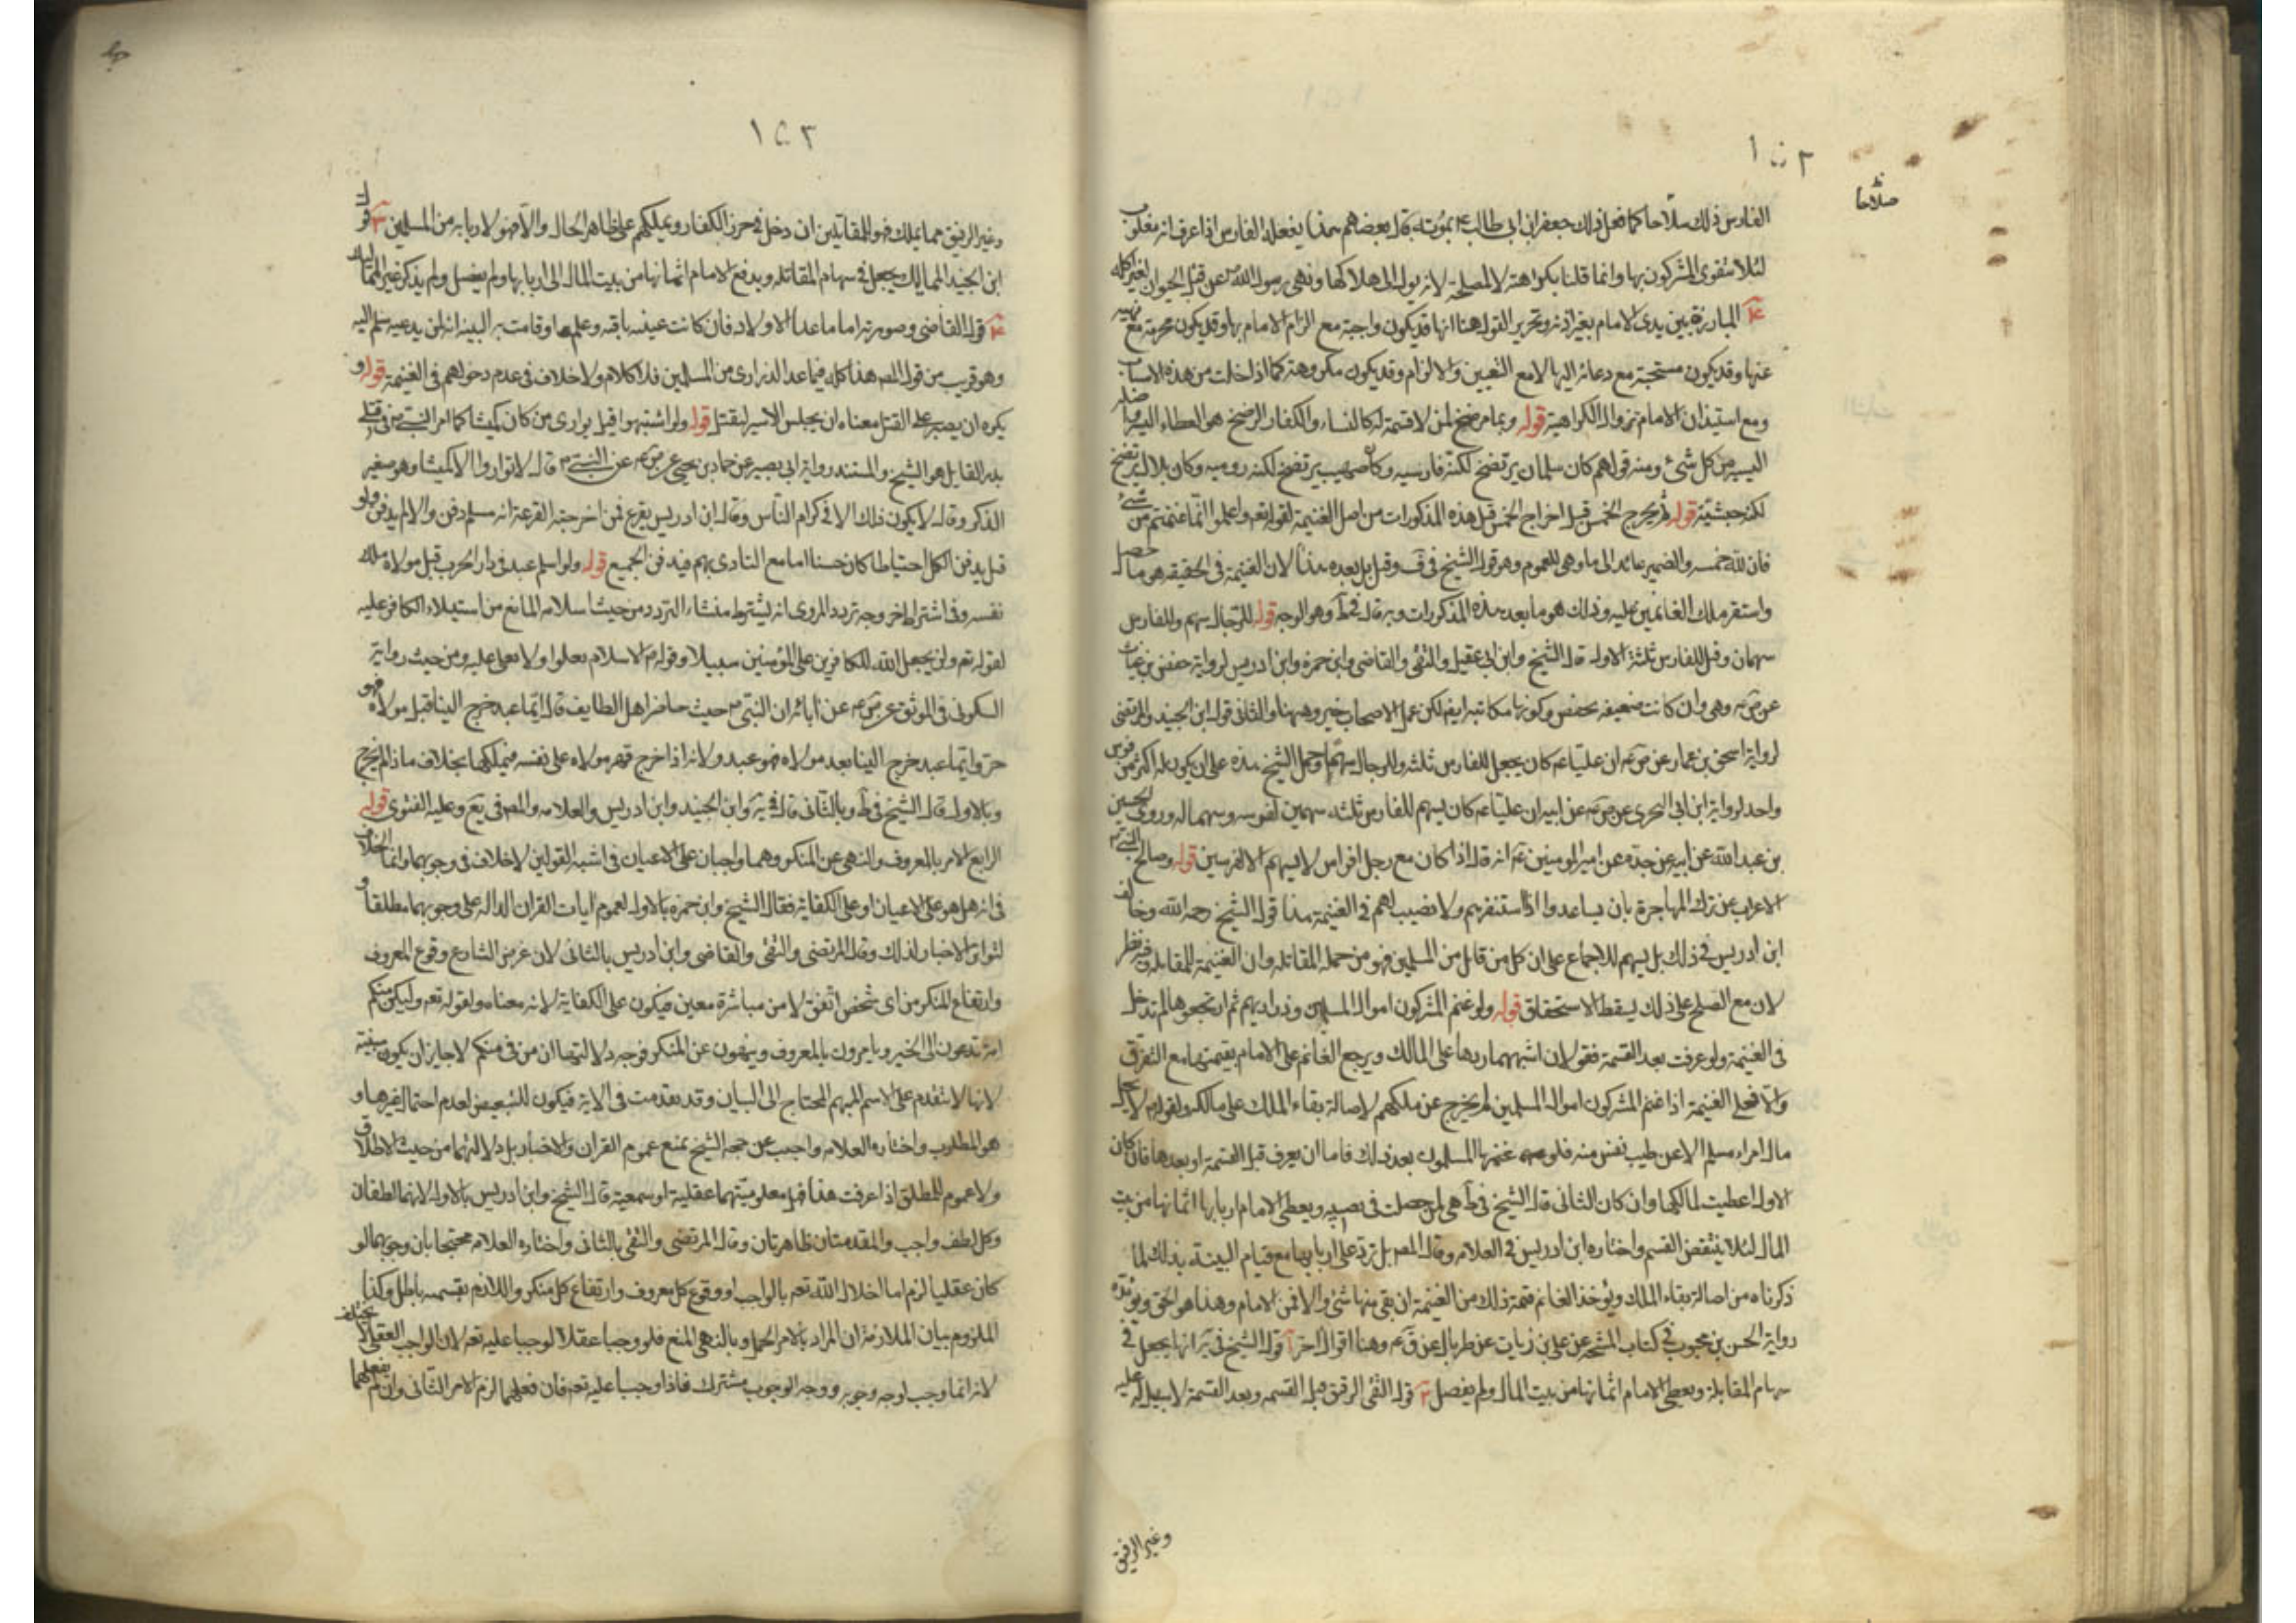 ١٥٢
صلاحا
الفارس ذلك سلاحا كما فعل ذلك جعفر ابن ابي طالب ع بموته قال بعضهم هذا يفعله الفارس اذا عرف انه مغلوب
لئلا يتقوى المشركون بها وانما قلنا بكراهته لا لمصلحة لانه يول الى هلاكها ونهى رسول الله ص عن قتل الحيوان لغير اكله
٤ المبارزة بين يدى الامام بغير اذنه وتحرير القول هنا انها قد يكون واجبة مع الزام الامام بها وقد يكون محرمة مع نهيه
عنها وقد يكون مستحبة مع دعائه اليها لا مع التعيين والالزام وقد يكون مكروهة كما اذا خلت من هذه الاسباب
ومع استيذان الامام تزول الكراهية قوله وبما يرضخ لمن لا قسمة له كالنساء والكفار الرضخ هو العطاء اليسير
اليسير من كل شئ ومنه قولهم كان سلمان يرتضخ لكنة فارسيه وكان صهيب يرتضخ لكنه روميه وكان بلال يرتضخ
لكنه حبشية قوله ثم يخرج الخمس قبل اخراج الخمس قبل هذه المذكورات من اصل الغنيمة لقوله تعم واعلموا انما غنمتم من شئ
فان لله خمسه والضمير عائد الى ما وهى للعموم وهو قول الشيخ في ف وقيل بل بعده هذا لان الغنيمة فى الحقيقه هو ما حصل
واستقر ملك الغانمين عليه وذلك هو ما بعد هذه المذكورات وبه قال في ط وهو الوجه قوله للرجال سهم وللفارس
سهمان وقيل للفارس ثلثة الاول قال الشيخ وابن ابي عقيل والتقى والقاضى وابن حمزه وابن ادريس لرواية حفص بن غياث
عن ص ع وهى وان كانت ضعيفه بحفص وكونها مكاتبه ايضا لكن عمل الاصحاب خير وههنا والثانى قول ابن الجنيد والمرتضى
لرواية اسحق بن عمار عن ص ع ان عليا ع كان يجعل للفارس ثلثه وللرجال سهما وحمل الشيخ هذه على ان يكون له اكثر من فرس
واحد لرواية ابن ابي البحرى عن ص ع عن ابيه ان عليا ع كان يسهم للفارس ثلثه سهمين لفرسه وسهما له وروى الحسين
بن عبد الله عن ابيه عن جده عن امير المومنين ع انه قال اذا كان مع رجل افراس لا يسهم الا لفرسين قوله وصالح النبى ص
الاعراب عن ترك المهاجرة بان يساعدوا اذا استنفرهم ولا نصيب لهم فى الغنيمة هذا قول الشيخ رحمه الله وخالف
ابن ادريس في ذلك بل يسهم للاجماع على ان كل من قاتل من المسلمين فهو من جملة المقاتله وان الغنيمة للمقاتله وفيه نظر
لان مع الصلح على ذلك يسقط الاستحقاق قوله ولو غنم المشركون اموال المسلمين وذراريهم ثم ارتجعوها لم تدخل
فى الغنيمة ولو عرفت بعد القسمة فقولان اشبههما ردها على المالك ويرجع الغانم على الامام بقيمتها مع التفرق
والا فعلى الغنيمة اذا غنم المشركون اموال المسلمين لم يخرج عن ملكهم لاصالة بقاء الملك على مالكه ولقوله ع لا يحل
مال امراء مسلم الا عن طيب نفس منه فلو غنمها المسلمون بعد ذلك فاما ان يعرف قبل القسمة او بعدها فان كان
الاول اعطيت لمالكها وان كان الثانى قال الشيخ في ط هى لمن حصلت فى نصيبه ويعطى الامام اربابها اثمانها من بيت
المال لئلا ينتقض القسم واختاره ابن ادريس في العلامه وقال المصر بل ترد على اربابها مع قيام البينة بذلك لما
ذكرناه من اصالة بقاء الملك ويوخذ الغانم قيمة ذلك من الغنيمة ان بقى منها شئ والا فمن الامام وهذا هو الحق ويوئده
رواية الحسن بن محبوب في كتاب المشيخه عن على بن زيات عن طربال عن ق ع وهنا اقوال اخر ا قول الشيخ فى ية انها يجعل في
سهام المقابلة ويعطى الامام اثمانها من بيت المال ولم يفصل ٢ قول التقى الرقيق قبل القسمه وبعد القسمة لا سبيل له عليه
وغير الرقيق
١٥٣
وغير الرقيق مما يملك فهو للمقاتلين ان دخل في حرز الكفار ويملكهم على ظاهر الحال والا فهو لاربابه من المسلمين ٣ قول
ابن الجنيد المماليك يجعل في سهام المقاتله ويدفع الامام اثمانها من بيت المال الى اربابها ولم يفصل ولم يذكر غير المماليك
٤ قول القاضى وصورته اما ما عدا الاولاد فان كانت عينه باقيه وعلمها وقامت به البينه انه لمن يدعيه سلم اليه
وهو قريب من قول المصر هذا كله فيما عدا الذرارى من المسلمين فلا كلام ولا خلاف فى عدم دخولهم فى الغنيمة قوله و
يكره ان يصبر على القتل معناه ان يجلس الاسير ليقتل قوله ولو اشتبهوا قيل يوارى من كان كميشا كما امر النبى ص فى قتلى
بدر القايل هو الشيخ والمستند رواية ابي بصير عن حماد بن يحيى عن ص ع عن النبى ص قال لا تواروا الا كميشا وهو صغير
الذكر وقال لا يكون ذلك الا في كرام الناس وقال ابن ادريس يقرع فمن اخرجته القرعة انه مسلم دفن والا لم يدفن ولو
قيل يدفن الكل احتياطا كان حسنا اما مع التنادى بهم فيدفن الجميع قوله ولو اسلم عبد فى دار الحرب قبل مولاه ملك
نفسه وفى اشتراط خروجه تردد المروى انه يشترط منشاء التردد من حيث اسلامه المانع من استيلاء الكافر عليه
لقوله تعم ولن يجعل الله للكافرين على المؤمنين سبيلا وقوله ع الاسلام يعلو ولا يعلى عليه ومن حيث رواية
السكونى فى الموثق عن ص ع عن آبائه ان النبى ص حيث حاصر اهل الطايف قال ايما عبد خرج الينا قبل مولاه فهو
حر وايما عبد خرج الينا بعد مولاه فهو عبد ولانه اذا خرج قهر مولاه على نفسه فيملكها بخلاف ما اذا لم يخرج
وبالاول قال الشيخ في ط وبالثانى قال فى ية وابن الجنيد وابن ادريس والعلامه والمصر فى يع وعليه الفتوى قوله
الرابع الامر بالمعروف والنهى عن المنكر وهما واجبان على الاعيان فى اشبه القولين لا خلاف فى وجوبهما وانما الخلاف
فى انه هل هو على الاعيان او على الكفاية فقال الشيخ وابن حمزه بالاول لعموم ايات القران الداله على وجوبهما مطلقا و
لتواتر الاخبار لذلك وقال المرتضى والتقى والقاضى وابن ادريس بالثانى لان غرض الشارع وقوع المعروف
وارتفاع المنكر من اى شخص اتفق لا من مباشرة معين فيكون على الكفاية لانه معناه ولقوله تعم وليكن منكم
امة تدعون الى الخير ويامرون بالمعروف وينهون عن المنكر فوجه دلالتها ان من فى منكم لا جايز ان يكون مبينة
لانها لا تتقدم على الاسم المبهم المحتاج الى البيان وقد تقدمت فى الاية فيكون للتبعيض لعدم احتمال غيرها و
هو المطلوب واختاره العلامه واجيب عن حجه الشيخ بمنع عموم القران والاخبار بل دلالتهما من حيث الاطلاق
ولا عموم للمطلق اذا عرفت هذا قيل معلوميتهما عقلية او سمعية قال الشيخ وابن ادريس بالاول لانهما لطفان
وكل لطف واجب والمقدمتان ظاهرتان وقال المرتضى والتقى بالثانى واختاره العلامه محتجا بان وجوبهما لو
كان عقليا لزم اما اخلال الله تعم بالواجب او وقوع كل معروف وارتفاع كل منكر واللازم بقسميه باطل وكذا
الملزوم بيان الملازمة ان المراد بالامر الحمل وبالنهى المنع فلو وجبا عقلا لوجبا عليه تعم لان الواجب العقلى لا يختلف
لانه انما وجب لوجه وجوبه ووجه الوجوب مشترك فاذا وجبا عليه تعم فان فعلهما لزم الامر الثانى وان لم يفعلهما